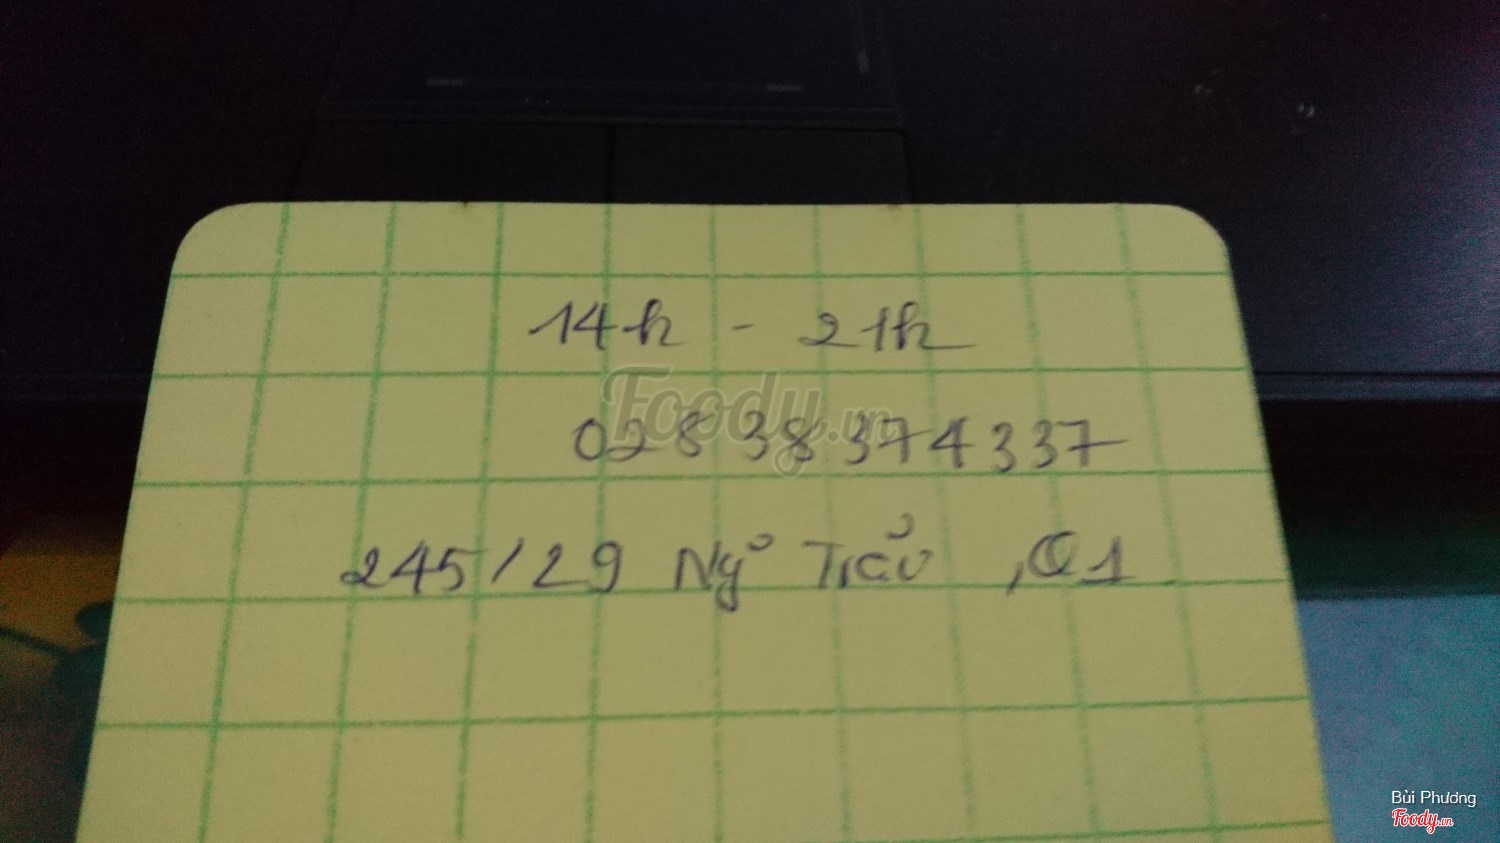 14h - 21h
Foody.vn
028 38 374337
245/29 Ng Trãi, Q1
Bùi Phương
Foody.vn